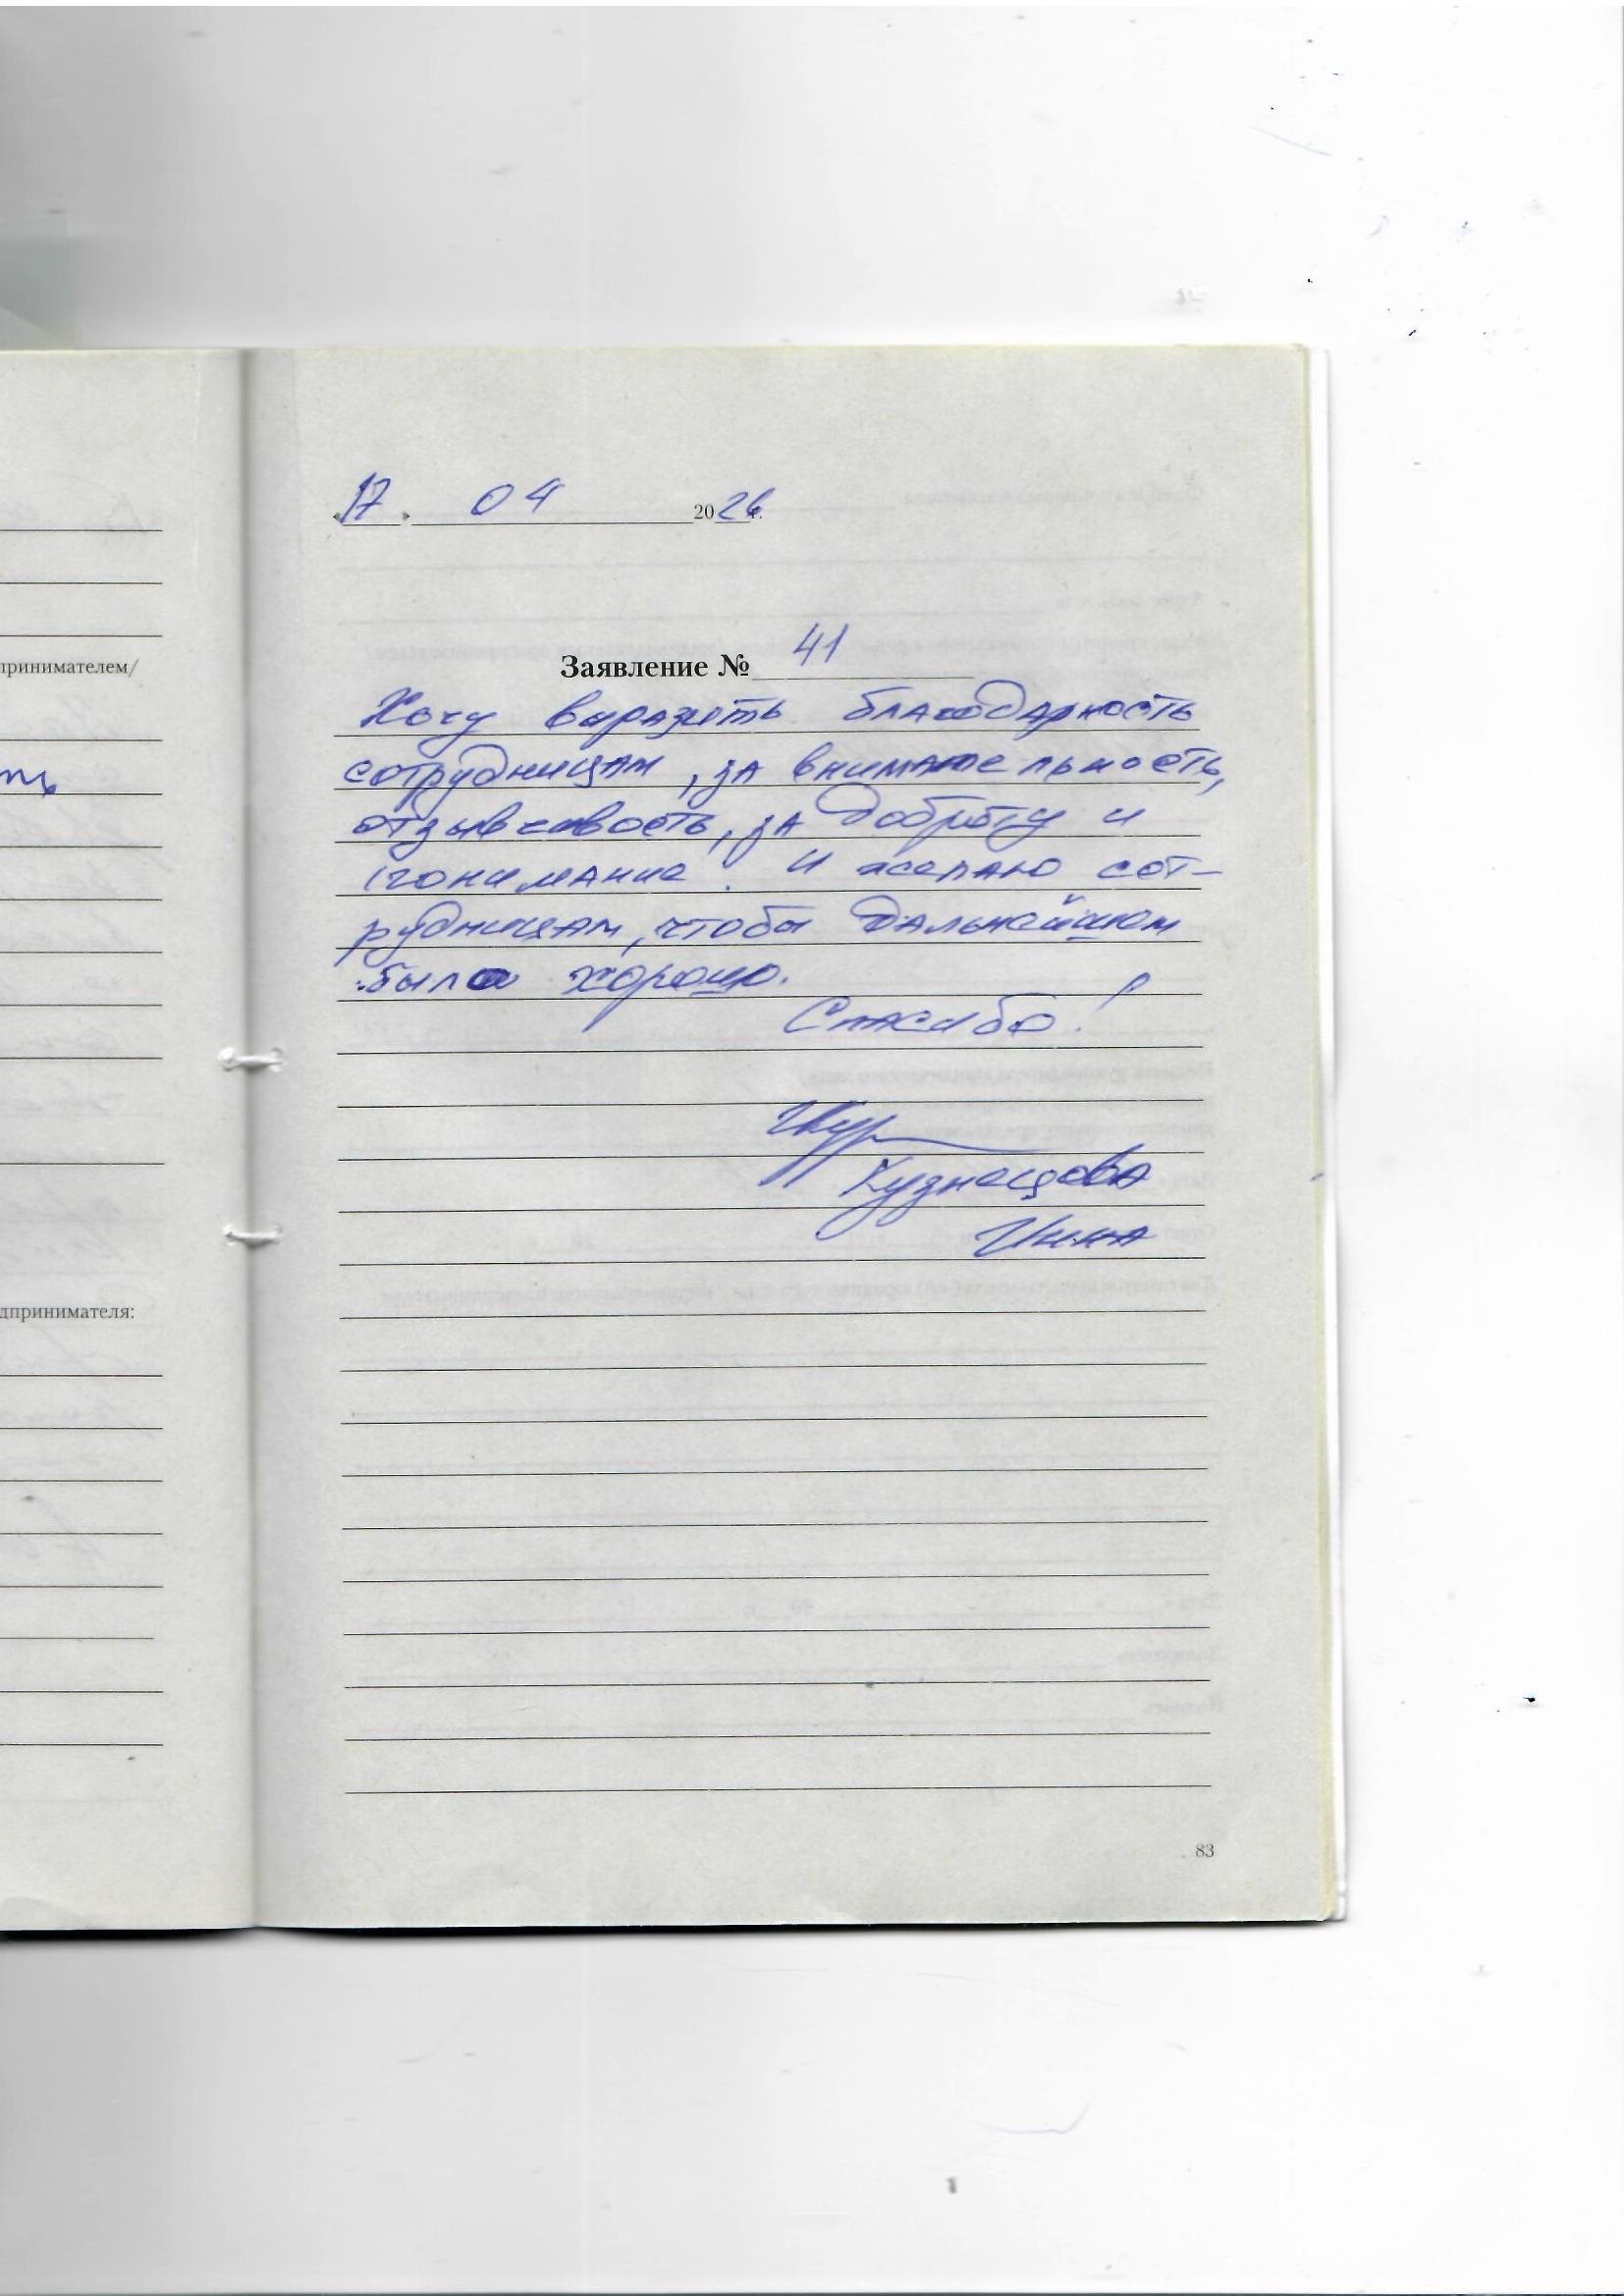 «17» 04 2026г.
принимателем/
Заявление № 41
Хочу выразить благодарность
сотрудницам, за внимательность,
отзывчивость, за доброту и
понимание. И желаю сот-
рудницам, чтобы дальнейшем
было хорошо.
Спасибо!
Кузнецова
Инна
дпринимателя:
83